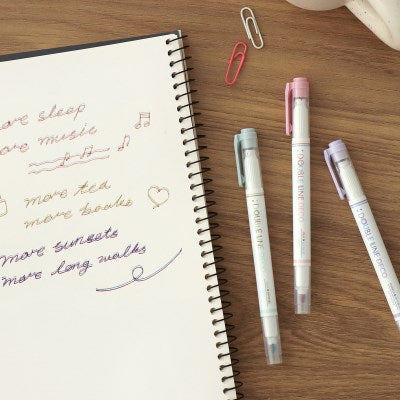 more sleep
more music
more tea
more books
more sunsets
more long walks
DOUBLE LINE
DOUBLE LINE DECO
DOUBLE LINE DECO